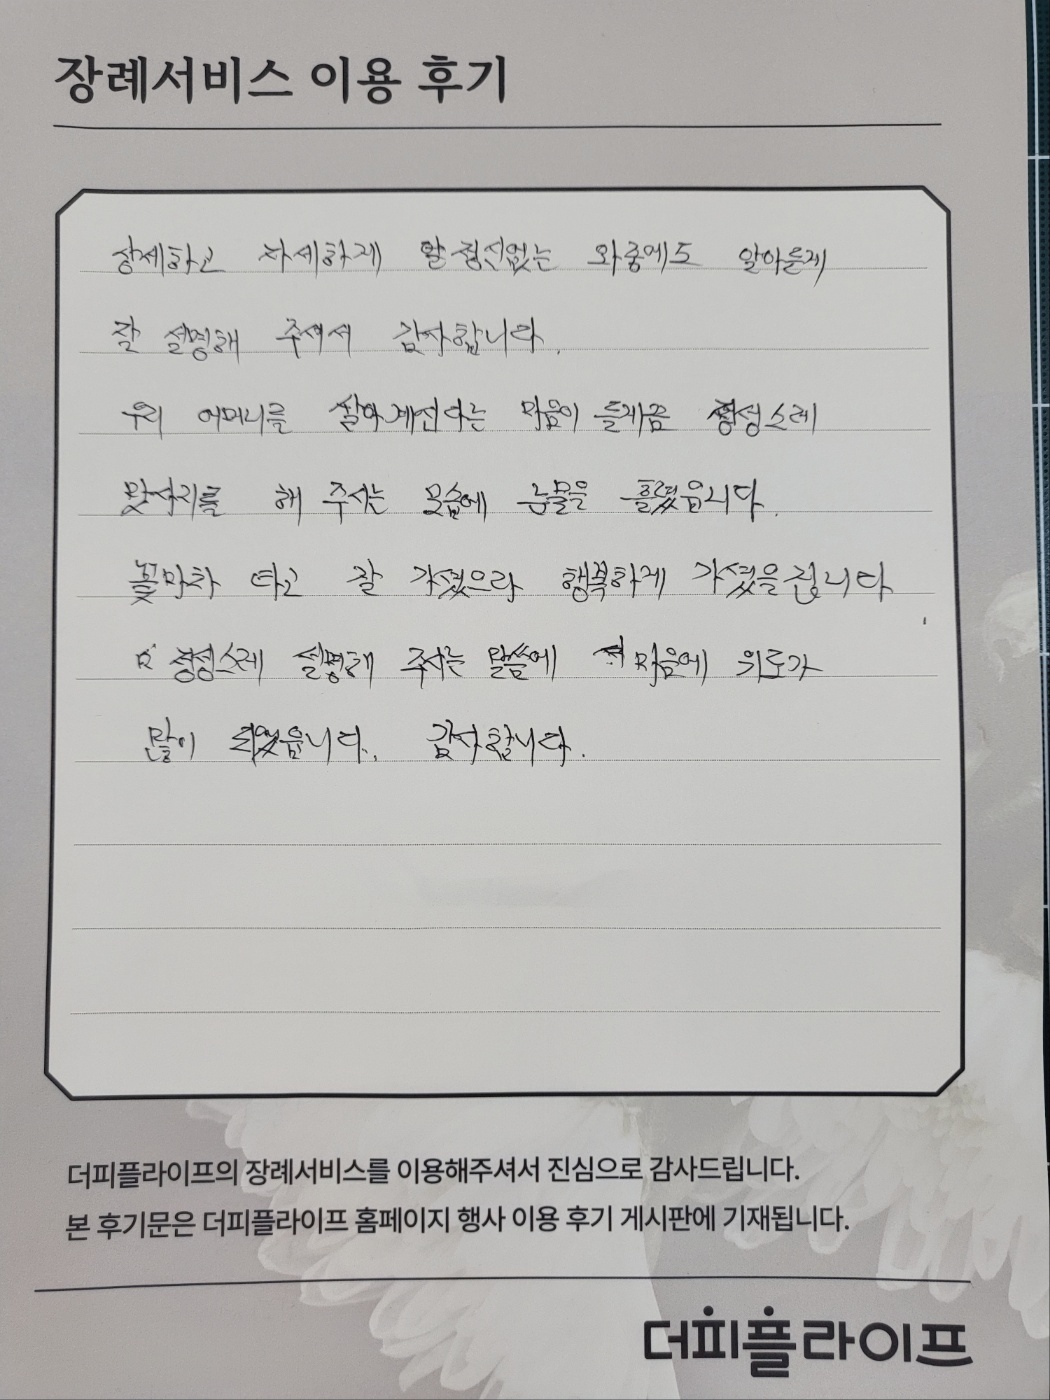 장례서비스 이용 후기
상세하고 자세하게 정신없는 와중에도 알아듣게
잘 설명해 주셔서 감사합니다.
우리 어머니를 살아계신다는 마음이 들게끔 정성스레
맞사지를 해 주시는 모습에 눈물을 흘렸읍니다.
꽃마차 타고 잘 가셨으라 행복하게 가셨을겁니다
정성스레 설명해 주시는 말씀에 마음에 위로가
많이 되었읍니다. 감사합니다.
더피플라이프의 장례서비스를 이용해주셔서 진심으로 감사드립니다.
본 후기문은 더피플라이프 홈페이지 행사 이용 후기 게시판에 기재됩니다.
더피플라이프